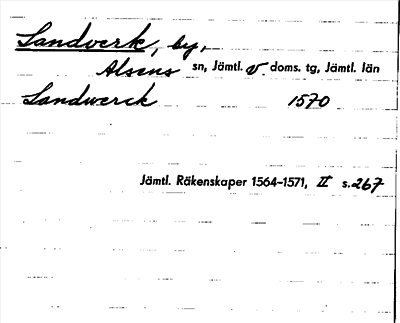 Landverk, by,
Alsens sn, Jämtl. v. doms. tg, Jämtl. län
Landwerck 1570
Jämtl. Räkenskaper 1564-1571, II s.267